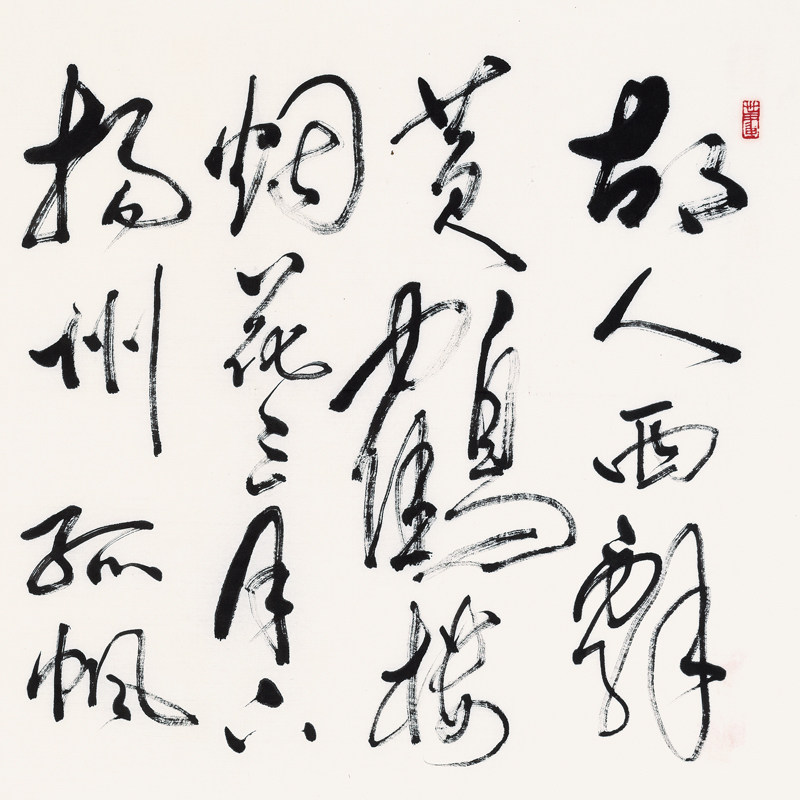 故人西辭
黄鶴樓
烟花三月下
揚州孤帆